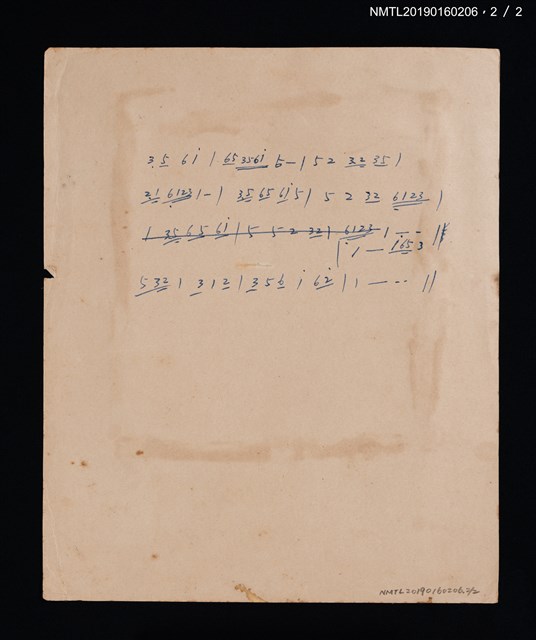 NMTL20190160206・2/2
3 5 6 i | 65 3561 5 — | 5 2 32 35 |
2i 6123 1 — | 35 65 61 5 | 5 2 32 6123 |
1 35 65 61 | 5 5 2 32 | 6123 1 — - ||
| i — 165 3
5 32 1 3 1 2 | 3 5 6 i 62 | 1 — - - ||
NMTL20190160206.2/2